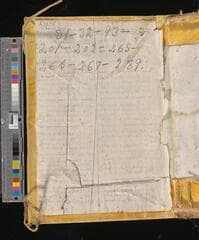 31-32-93-
201-202-265-
266-267-289.